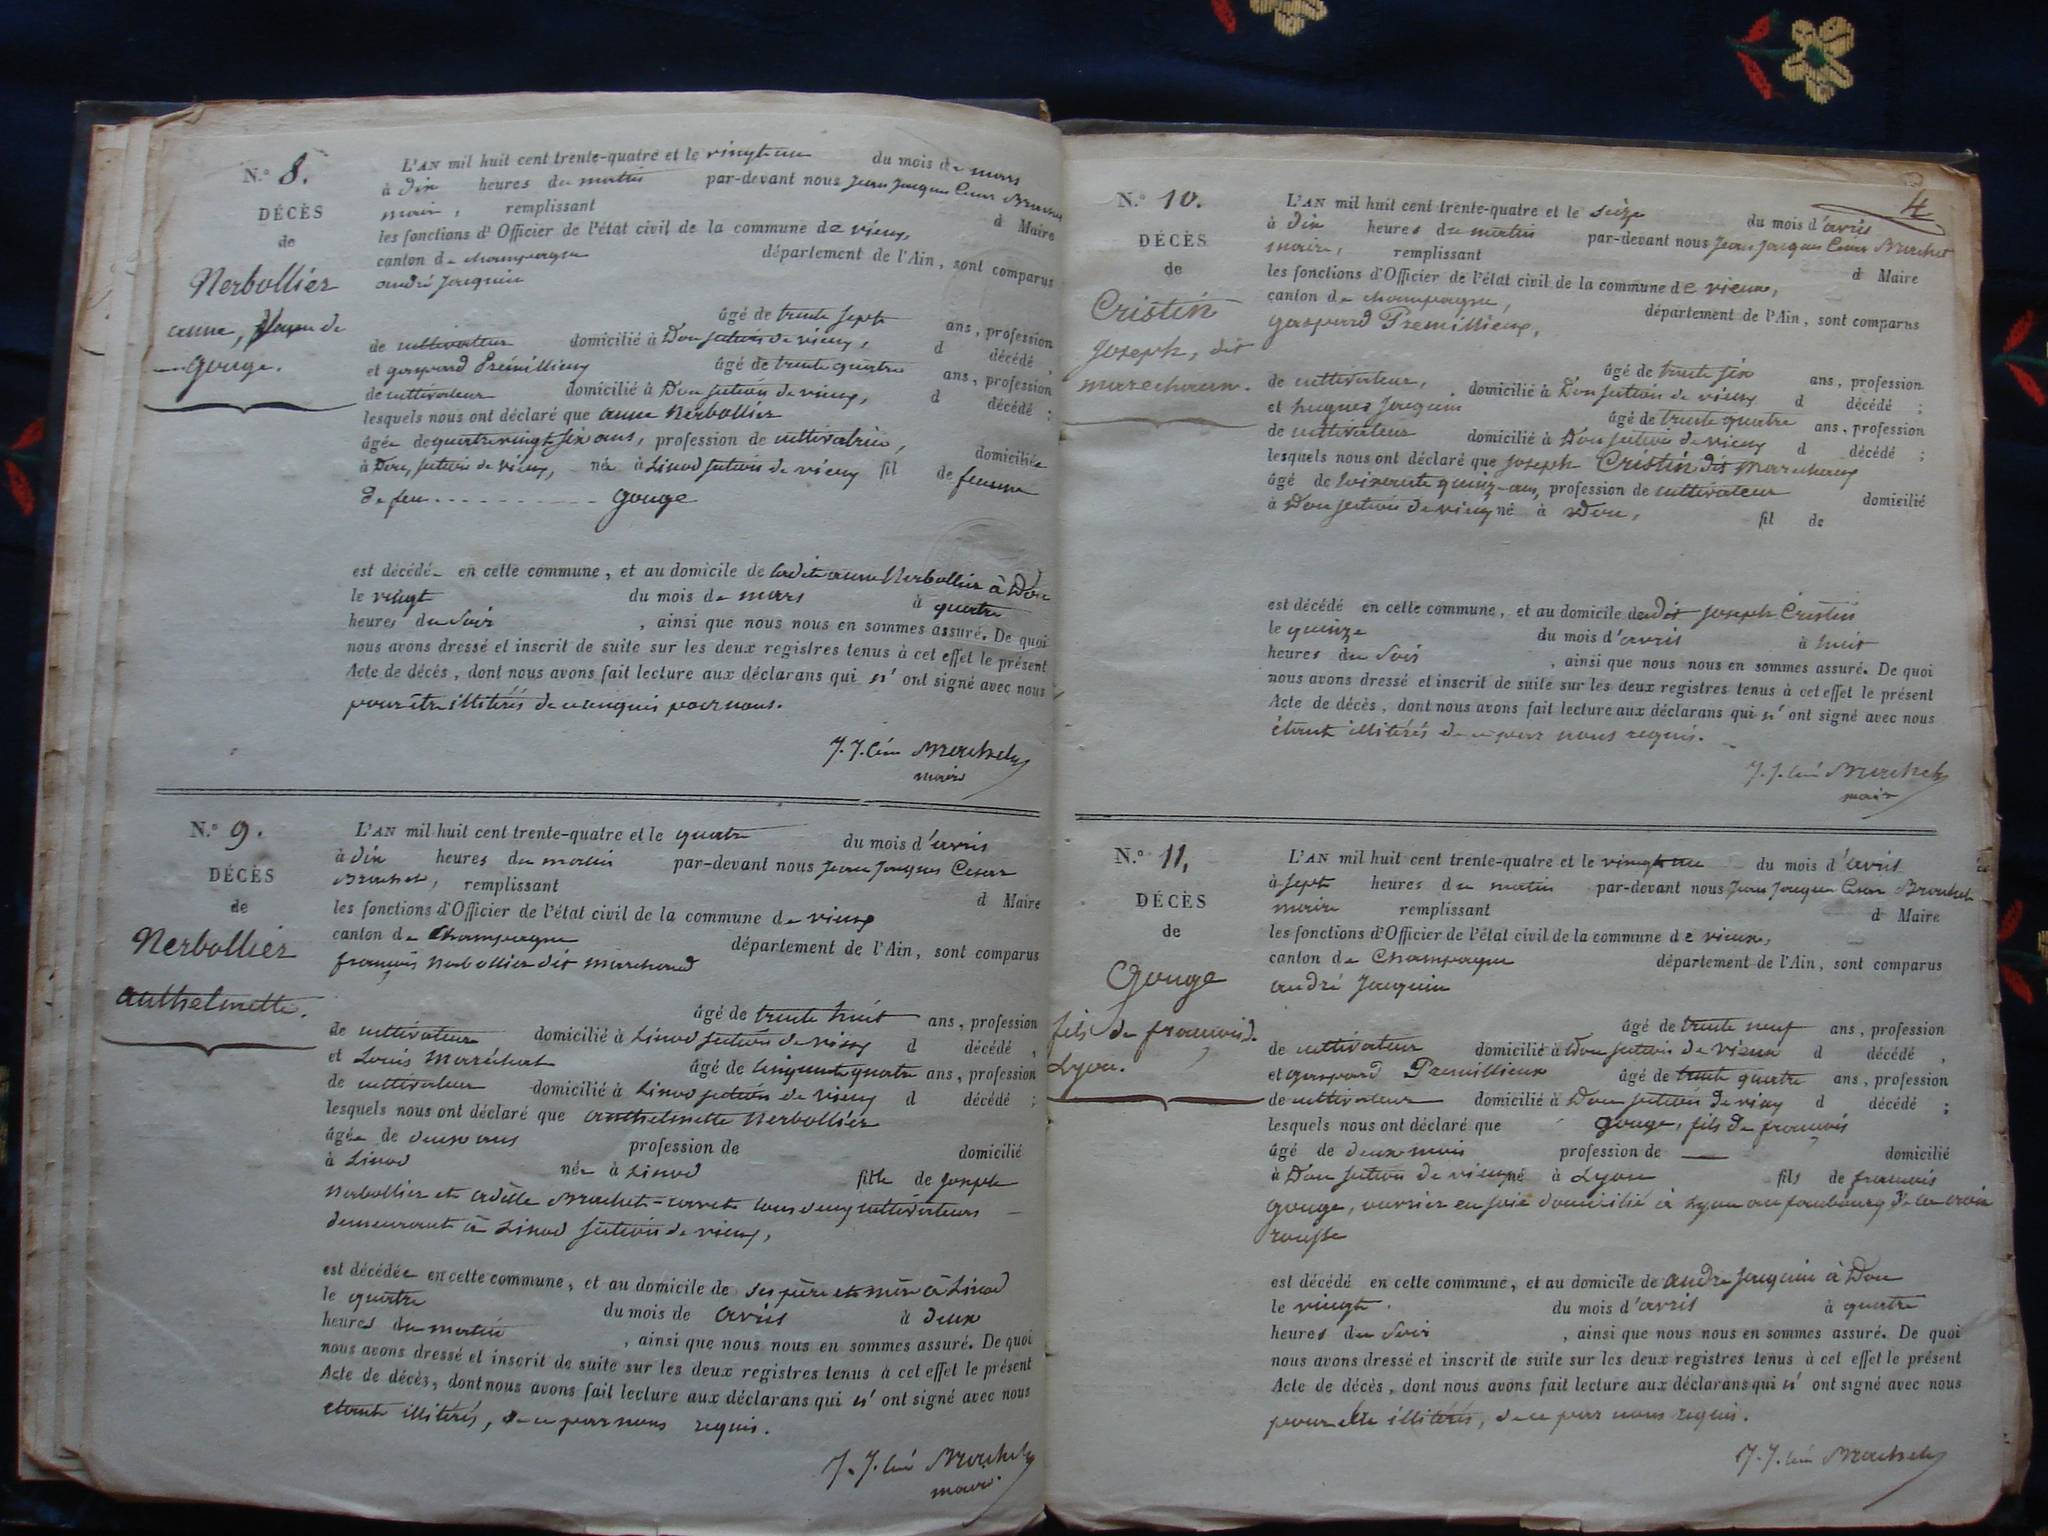 N.° 8.
DÉCÈS
de
Nerbollier
anne, de
gouge.
L'AN mil huit cent trente-quatre et le vingt un du mois de mars
à dix heures du matin par-devant nous Jean Jacques Cesar Brachet
maire, remplissant d Maire
les fonctions d'Officier de l'état civil de la commune de vieux,
canton de champagne département de l'Ain, sont comparus
andré Jacquin
âgé de trente sept ans, profession
de cultivateur domicilié à Don section de vieux, d décédé,
et gaspard Prémillieux âgé de trente quatre ans, profession
de cultivateur domicilié à Don section de vieux, d décédé ;
lesquels nous ont déclaré que anne Nerbollier
âgée de quatrevingt six ans, profession de cultivatrice, domiciliée
à Don, section de vieux, née à Linod section de vieux fil de femme
de feu gouge
est décédée en cette commune, et au domicile de ladite anne Nerbollier à Don
le vingt du mois de mars à quatre
heures du soir, ainsi que nous nous en sommes assuré. De quoi
nous avons dressé et inscrit de suite sur les deux registres tenus à cet effet le présent
Acte de décès, dont nous avons fait lecture aux déclarans qui n' ont signé avec nous
pour être illitérés de ce requis par nous.
J. J. César Brachet
maire
N.° 9.
DÉCÈS
de
Nerbollier
anthelmette.
L'AN mil huit cent trente-quatre et le quatre du mois d'avril
à dix heures du matin par-devant nous Jean Jacques Cesar
Brachet, remplissant d Maire
les fonctions d'Officier de l'état civil de la commune de vieux
canton de Champagne département de l'Ain, sont comparus
françois Nerbollier dit marchand
âgé de trente huit ans, profession
de cultivateur domicilié à Linod section de vieux d décédé,
et Louis Maréchal âgé de cinquante quatre ans, profession
de cultivateur domicilié à Linod section de vieux d décédé ;
lesquels nous ont déclaré que anthelmette Nerbollier
âgée de deux ans profession de domicilié
à Linod née à Linod fille de Joseph
Nerbollier et adèlle Brachet-corret tous deux cultivateurs
demeurant à Linod section de vieux,
est décédée en cette commune, et au domicile de ses père et mère à Linod
le quatre du mois de avril à deux
heures du matin, ainsi que nous nous en sommes assuré. De quoi
nous avons dressé et inscrit de suite sur les deux registres tenus à cet effet le présent
Acte de décès, dont nous avons fait lecture aux déclarans qui n' ont signé avec nous
étant illitérés, de ce par nous requis.
J. J. César Brachet
maire
4
N.° 10.
DÉCÈS
de
Cristin
Joseph, dit
marechaux.
L'AN mil huit cent trente-quatre et le seize du mois d'avril
à dix heures du matin par-devant nous Jean Jacques Cesar Brachet
maire, remplissant d Maire
les fonctions d'Officier de l'état civil de la commune de vieux,
canton de champagne, département de l'Ain, sont comparus
gaspard Premillieux,
âgé de trente six ans, profession
de cultivateur, domicilié à Don section de vieux d décédé ;
et hugues Jacquin âgé de trente quatre ans, profession
de cultivateur domicilié à Don section de vieux d décédé ;
lesquels nous ont déclaré que joseph Cristin dit Marechaux
âgé de soixante quinze ans, profession de cultivateur domicilié
à Don section de vieux né à Don, fil de
est décédé en cette commune, et au domicile dudit joseph Cristin
le quinze du mois d'avril à huit
heures du soir, ainsi que nous nous en sommes assuré. De quoi
nous avons dressé et inscrit de suite sur les deux registres tenus à cet effet le présent
Acte de décès, dont nous avons fait lecture aux déclarans qui n' ont signé avec nous
étant illitérés de ce par nous requis.
J. J. César Brachet
maire
N.° 11,
DÉCÈS
de
Gouge
fils de françois de
Lyon.
L'AN mil huit cent trente-quatre et le vingt un du mois d'avril
à sept heures du matin par-devant nous Jean Jacques Cesar Brachet
maire remplissant d Maire
les fonctions d'Officier de l'état civil de la commune de vieux,
canton de Champagne département de l'Ain, sont comparus
andré Jacquin
âgé de trente neuf ans, profession
de cultivateur domicilié à Don section de vieux d décédé,
et gaspard Premillieux âgé de trente quatre ans, profession
de cultivateur domicilié à Don section de vieux d décédé ;
lesquels nous ont déclaré que gouge, fils de françois
âgé de deux mois profession de — domicilié
à Don section de vieux né à Lyon fils de françois
gouge, ouvrier en soie domicilié à Lyon au faubourg de la croix
rousse
est décédé en cette commune, et au domicile de andré Jacquin à Don
le vingt. du mois d'avril à quatre
heures du soir, ainsi que nous nous en sommes assuré. De quoi
nous avons dressé et inscrit de suite sur les deux registres tenus à cet effet le présent
Acte de décès, dont nous avons fait lecture aux déclarans qui n' ont signé avec nous
pour être illitérés, de ce par nous requis.
J. J. César Brachet